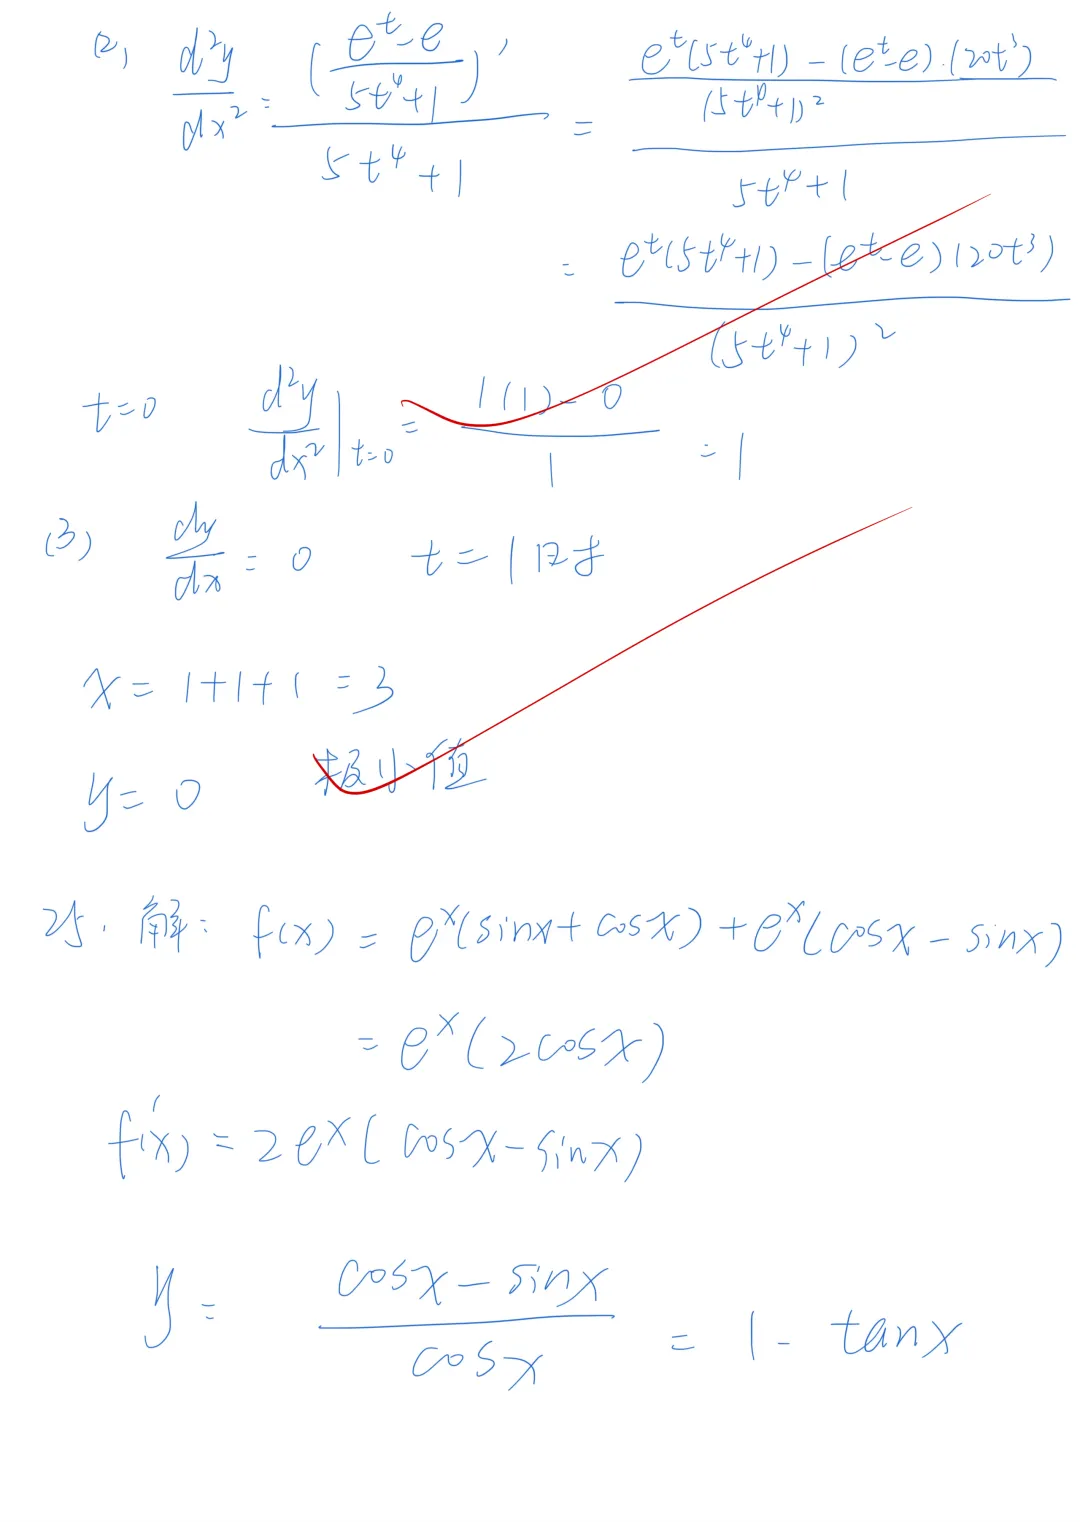 (2) d²y/dx² = ((e^t-e)/(5t⁴+1))' / (5t⁴+1) = (e^t(5t⁴+1) - (e^t-e)·(20t³))/(5t⁴+1)² / (5t⁴+1)
= (e^t(5t⁴+1) - (e^t-e)(20t³)) / (5t⁴+1)²
t=0 d²y/dx² |t=0 = (1(1) - 0)/1 = 1
(3) dy/dx = 0 t=1时
x = 1+1+1 = 3
y = 0 极小值
25. 解: f(x) = e^x(sinx+cosx)+e^x(cosx-sinx)
= e^x(2cosx)
f'(x) = 2e^x(cosx-sinx)
y = (cosx-sinx)/cosx = 1 - tanx